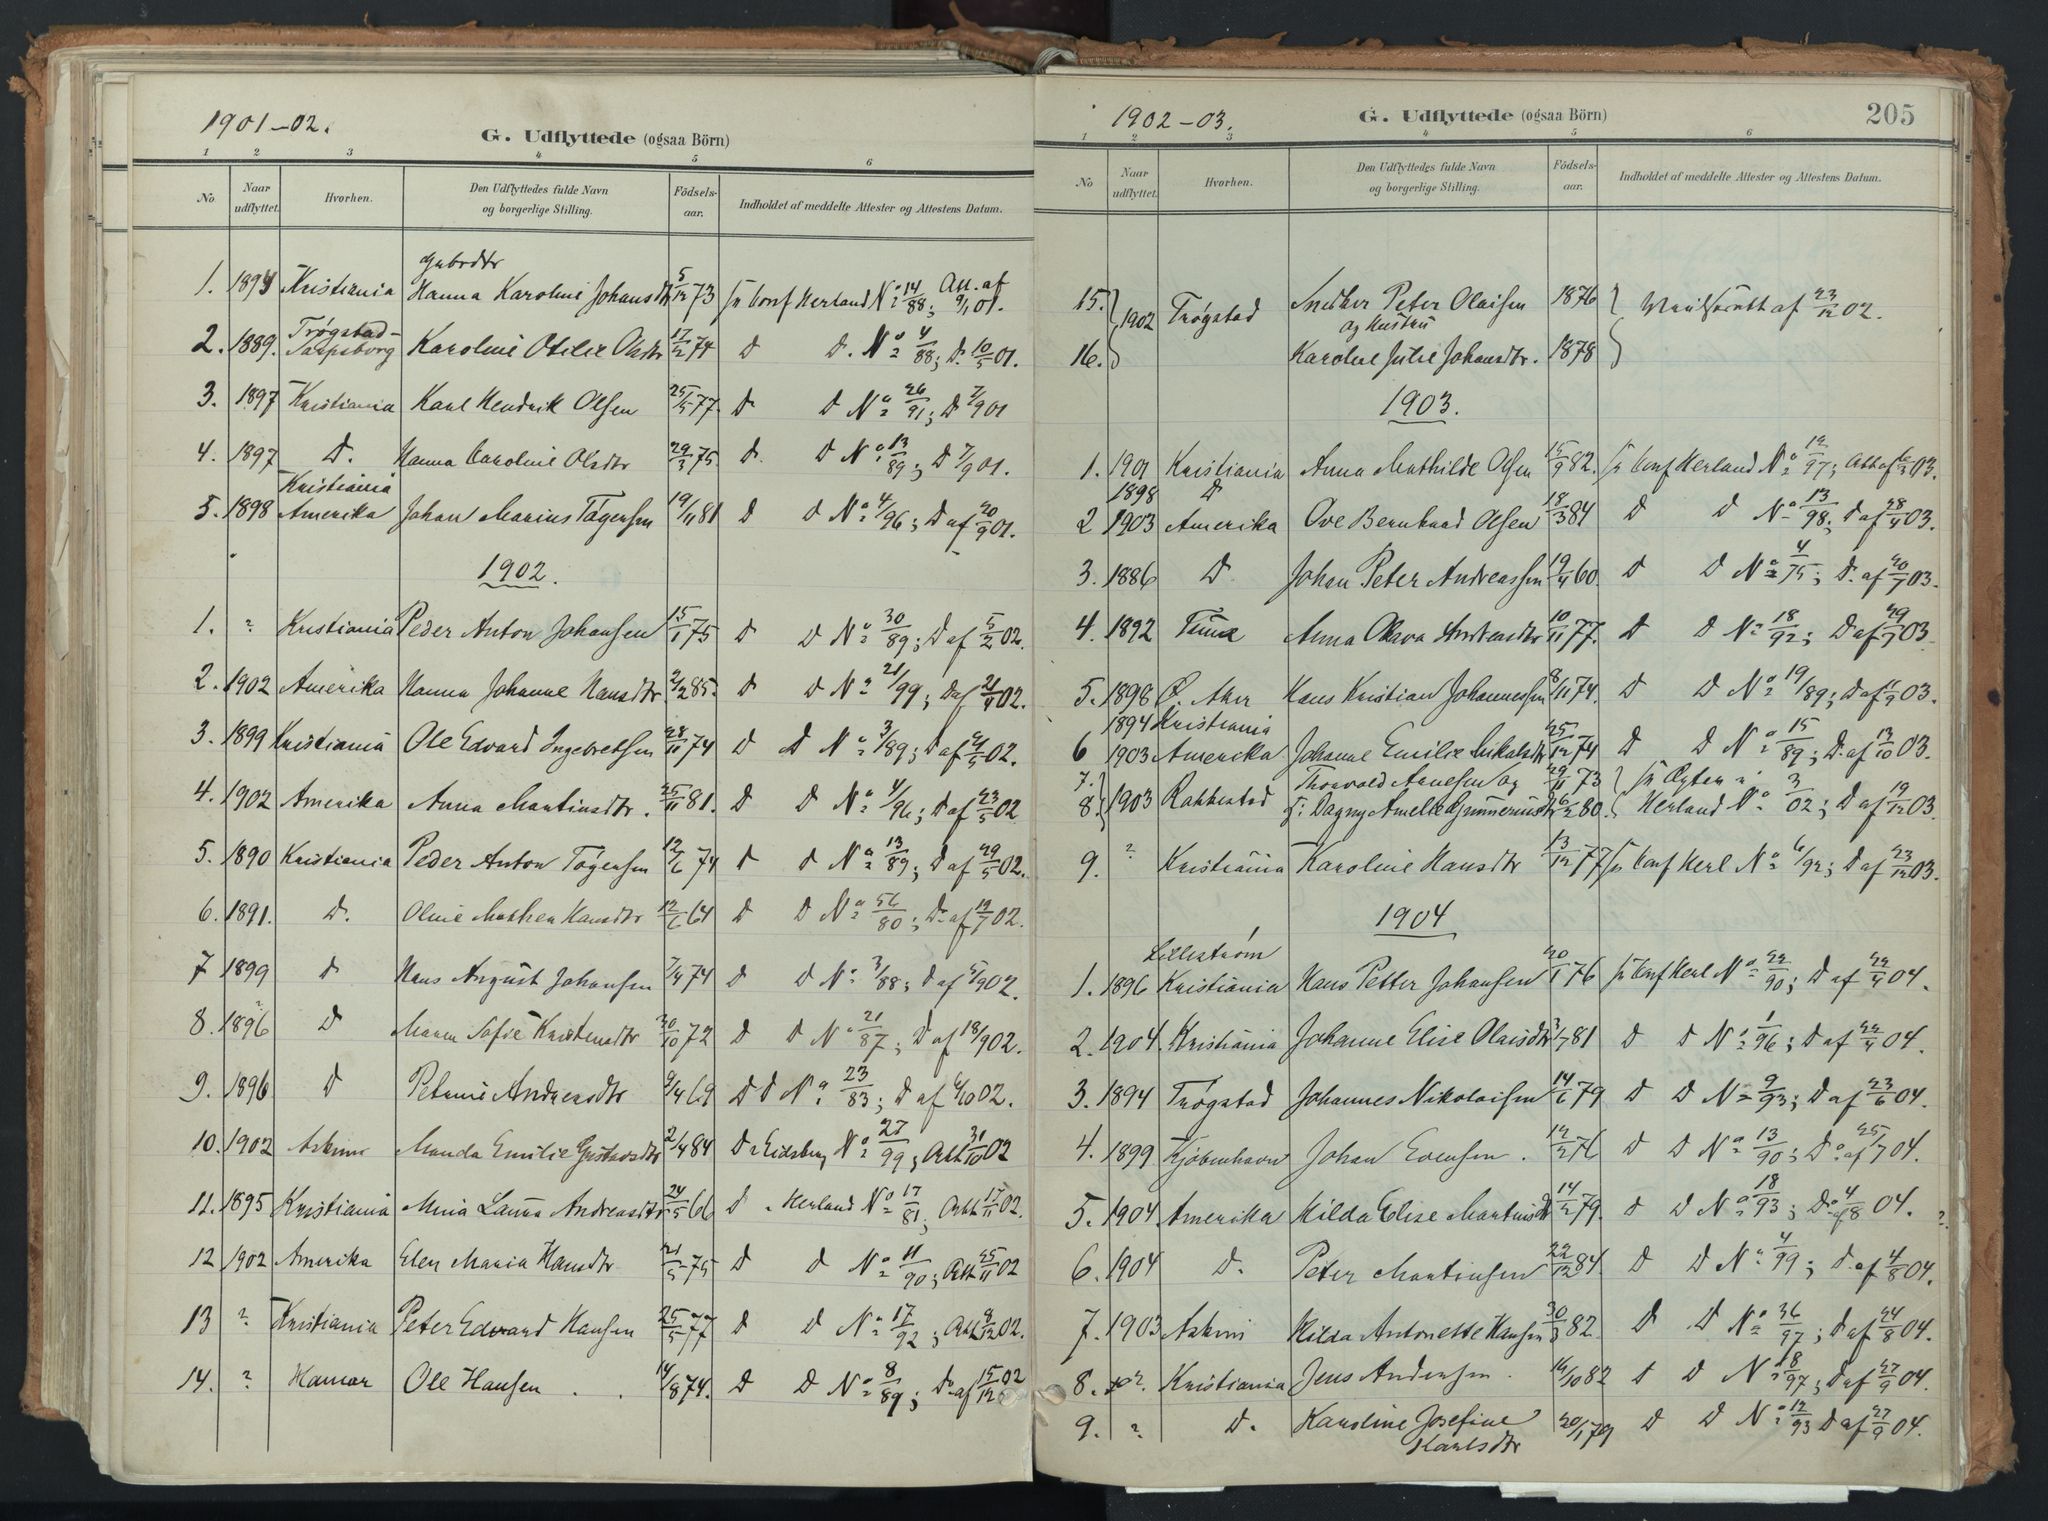 1901-02.
G. Udflyttede (ogsaa Börn)
1 2 3 4 5 6
No Naar udflyttet. Hvorhen. Den Udflyttedes fulde Navn og borgerlige Stilling. Födsels-aar. Indholdet af meddelte Attester og Attestens Datum.
1. Kristiania Hanna Karoline Johansdtr 5/12 73 Herland No 14/88; Att. af 9/1 01.
2. 1889. Trøgstad- Sarpsborg Karoline Otilie Olsdtr 17/2 74 D D. No 4/88; D. 10/5 01.
3. 1897 Kristiania Karl Hendrik Olsen 25/5 77. D D No 26/91; D 7/9 01
4. 1897 D. Hanna Caroline Olsdtr 29/3 75. D. D No 13/89; D 7/9 01.
Kristiania
5. 1898 Amerika Johan Marius Tøgersen 19/11 81 D D No 4/96; D af 20/9 01.
1902.
1. ? Kristiania Peder Anton Johansen 15/1 75 D D No 30/89; D af 5/2 02.
2. 1902 Amerika Hanna Johanne Hansdtr 2/2 85. D D No 21/99; D af 21/4 02.
3. 1899 Kristiania Ole Edvard Ingebretsen 28/11 74 D D No 3/89; D af 02.
4. 1902 Amerika Anna Martinsdtr. 25/11 81. D D No 4/96; D af 23/5 02
5. 1890 Kristiania Peder Anton Tøgersen 12/6 74 D D No 13/89; D af 29/5 02.
6. 1891. D. Oline Hansdtr 12/6 64 D D No 56/80; D. af 19/7 02.
7 1899 D Hans August Johansen 7/4 74 D D No 3/88; D af 02.
8. 1896 ? D Maren Sofie Kristensdtr 30/10 72 D D No 21/87; D af 18/9 02.
9. 1896 D Petrine Andreasdtr 9/4 69 D D No 23/83; D af 02.
10. 1902 Askim Manda Emilie Gustavsdtr 2/4 84 D Eidsberg No 27/99; Att 31/10 02
11. 1895 Kristiania Mina Laura Andreasdtr 24/5 66 D Herland No 17/81; Att 17/11 02.
12 1902 Amerika Elen Maria Hansdtr 21/5 75 D D No 11/90; Att 25/11 02
13 ? Kristiania Peter Edvard Hansen 25/5 77 D D No 17/92; Att 9/12 02.
14. ? Hamar Ole Hansen 14/8 74. D D No 8/89; D. af 15/12 02
1902-03.
G. Udflyttede (ogsaa Börn)
205
1 2 3 4 5 6
No Naar udflyttet. Hvorhen. Den Udflyttedes fulde Navn og borgerlige Stilling. Födsels-aar. Indholdet af meddelte Attester og Attestens Datum.
15. 1902 Trøgstad Snedker Peter Olaisen 1876 af 23/12 02.
og Hustru
16. Karoline Julie Johansdtr. 1878
1903.
1. 1901 Kristiania Anna Mathilde Olsen 15/9 82. Herland No 12/97; Att af 03.
1898 D
2 1903 Amerika Ove Bernhard Olsen 18/3 84 D D No 13/98; D af 28/4 03.
3. 1886 D Johan Peter Andreassen 19/4 60. D D No 4/75; D. af 20/7 03.
4. 1892 Anna Olava Andreasdtr 10/11 77. D D No 18/92; D af 29/7 03.
5. 1898 Ø. Aker Hans Kristian Johannessen 8/11 74. D D No 19/89; D af 03.
1894 Kristiania
6 1903 Amerika Johanne Emilie 25/12 74 D D No 15/89; D. af 13/10 03.
7. Thorvald Arnesen og 29/11 73
8. 1903 Rakkestad Dagny Amelie 80. Herland No 3/02; D af 19/12 03.
9. ? Kristiania Karoline Hansdtr 13/12 77 Herl No 6/92; D af 23/12 03.
1904
Lillestrøm
1. 1896 Kristiania Hans Petter Johansen 20/1 76 Herl No 22/90; D af 22/4 04.
2. 1904. Kristiania Johanne Elise Olaisdtr 3/7 81 D D No 1/96; D af 22/4 04.
3. 1894 Trøgstad Johannes Nikolaisen 14/6 79 D D No 9/93; D af 23/6 04.
4. 1899 Kjøbenhavn Johan Evensen. 12/2 76 D D No 13/90; D. af 25/7 04.
5. 1904 Amerika Hilda Elise Martinsdtr 14/2 79. D D No 18/93; D. af 4/8 04.
6. 1904 D. Peter Martinsen 22/12 84. D D No 4/99; D. af 4/8 04.
7. 1903 Askim Hilda Antonette Hansen 30/3 82. D D No 36/97; D af 24/8 04.
8. ? Kristiania Jens Andersen. 16/10 82 D D No 18/97; D af 27/9 04.
9. ? D. Karoline Josefine 20/1 79 D D No 12/93 D af 27/9 04.
Karlsdtr